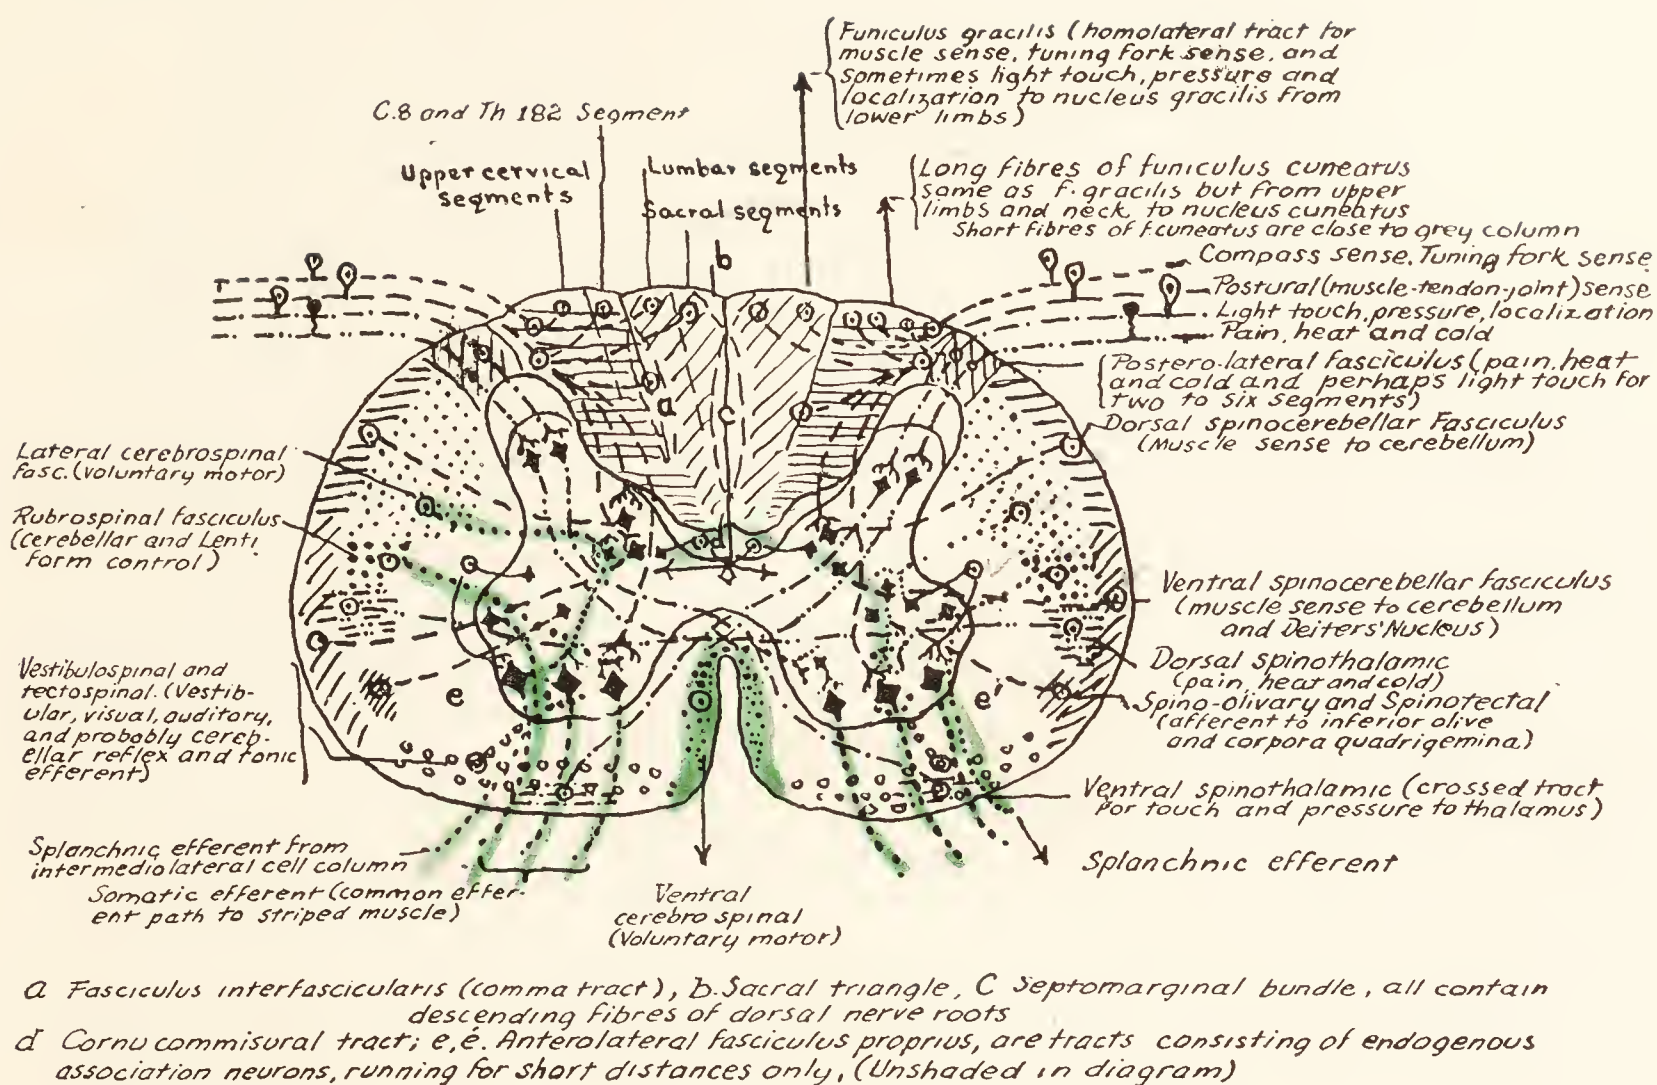 Funiculus gracilis (homolateral tract for
muscle sense, tuning fork sense, and
sometimes light touch, pressure and
localization to nucleus gracilis from
lower limbs)
C.8 and Th 1&2 Segment
Upper cervical
segments
Lumbar segments
Sacral segments
b
Long fibres of funiculus cuneatus
same as f. gracilis but from upper
limbs and neck to nucleus cuneatus
Short fibres of f.cuneatus are close to grey column
Compass sense, Tuning fork sense
Postural (muscle-tendon-joint) sense
Light touch, pressure, localization
Pain, heat and cold
Postero-lateral fasciculus (pain, heat
and cold and perhaps light touch for
two to six segments)
Dorsal spinocerebellar Fasciculus
(Muscle sense to cerebellum)
a
c
d
Lateral cerebrospinal
fasc. (voluntary motor)
Rubrospinal fasciculus
(cerebellar and Lenti
form control)
Vestibulospinal and
tectospinal. (Vestib-
ular, visual, auditory,
and probably cereb-
ellar reflex and tonic
efferent)
e
e
Ventral spinocerebellar fasciculus
(muscle sense to cerebellum
and Deiters' Nucleus)
Dorsal spinothalamic
(pain, heat and cold)
Spino-olivary and Spinotectal
(afferent to inferior olive
and corpora quadrigemina)
Ventral spinothalamic (crossed tract
for touch and pressure to thalamus)
Splanchnic efferent from
intermediolateral cell column
Somatic efferent (common effer-
ent path to striped muscle)
Ventral
cerebro spinal
(Voluntary motor)
Splanchnic efferent
a Fasciculus interfascicularis (comma tract), b. Sacral triangle, C Septomarginal bundle, all contain
descending fibres of dorsal nerve roots
d Cornu commisural tract; e, é. Anterolateral fasciculus proprius, are tracts consisting of endogenous
association neurons, running for short distances only, (Unshaded in diagram)